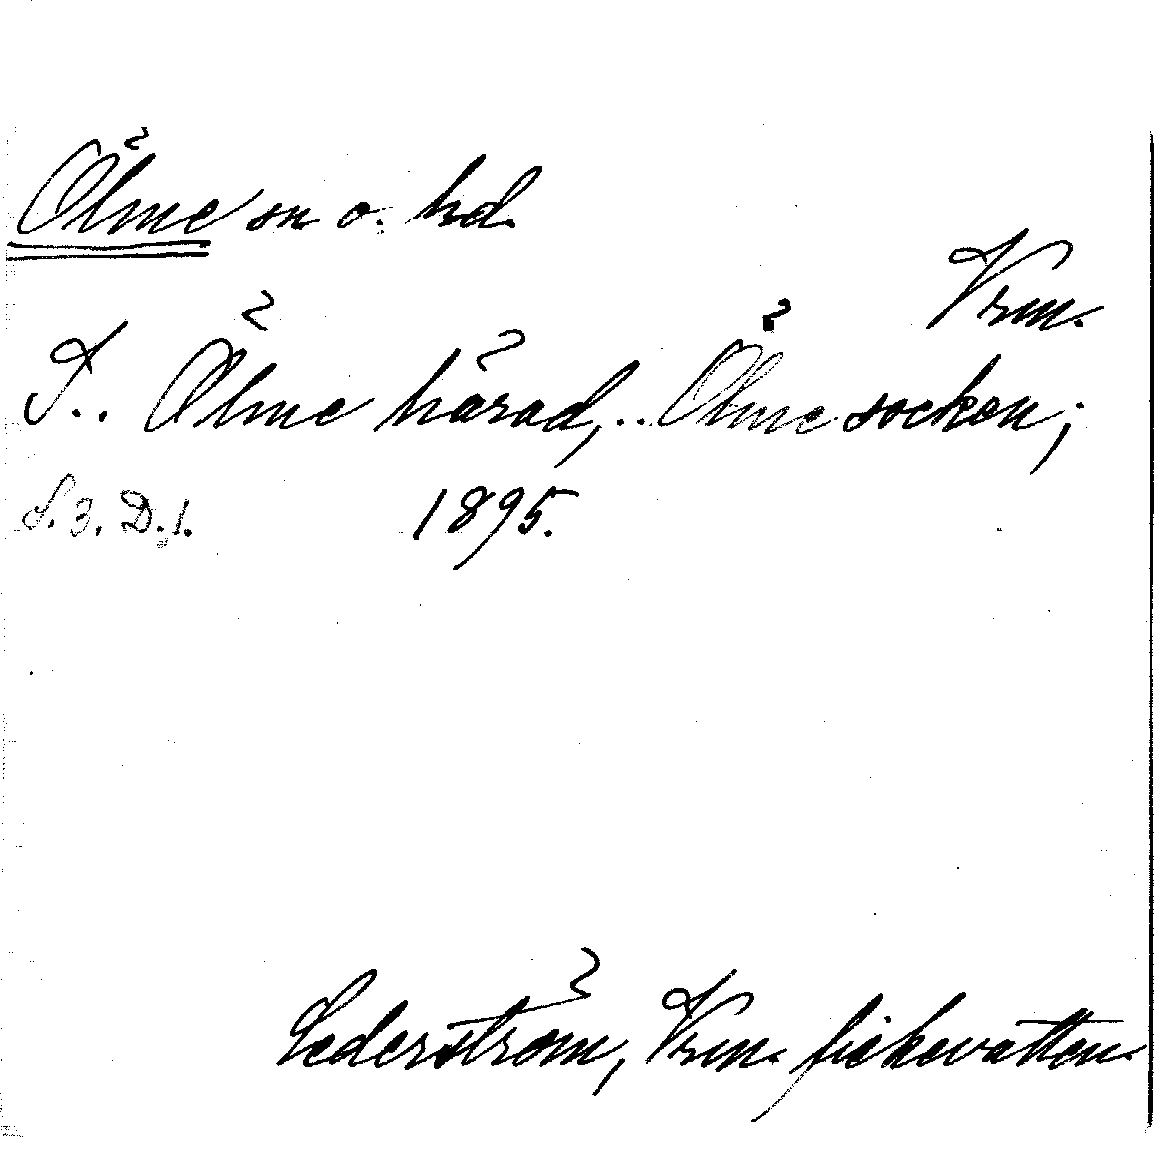 Ölme sn o. hd.
Vrm.
I.. Ölme härad,.. Ölme socken;
S. 3. D. 1. 1895.
Cederström, Vrm. fiskevatten.